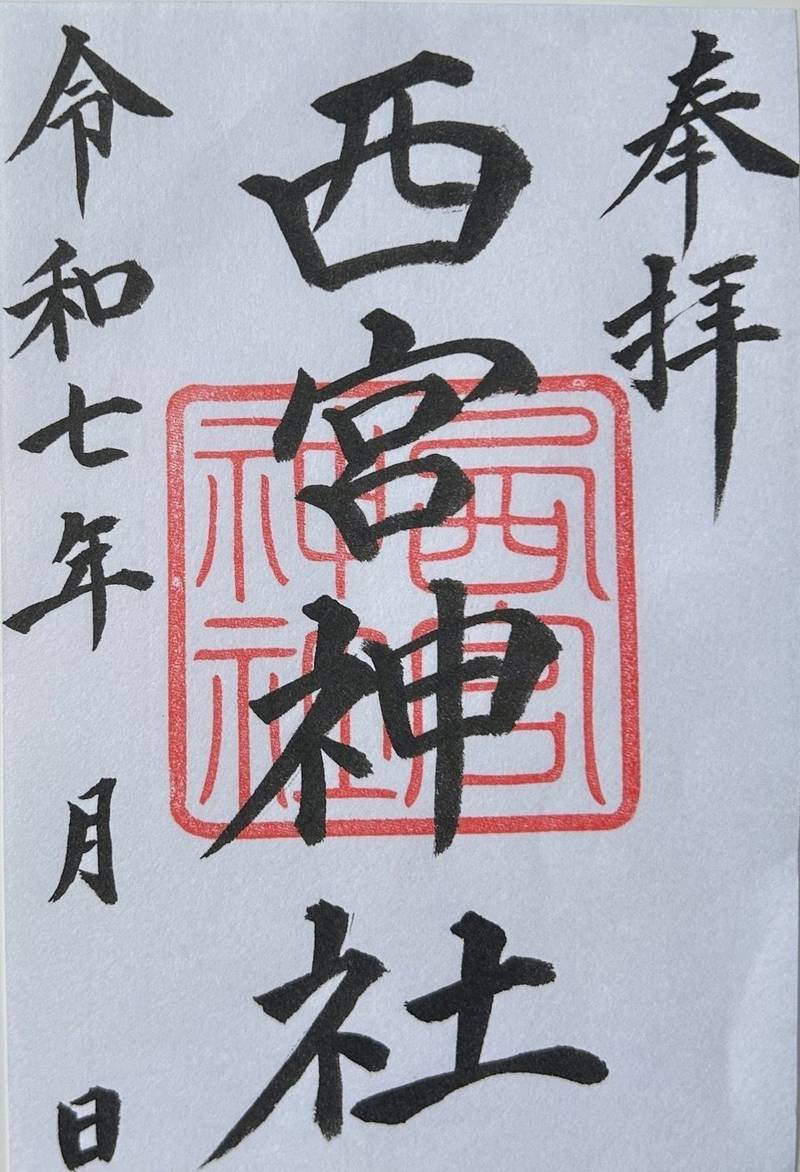 奉拝
西宮神社
西宮
神社
令和七年 月 日